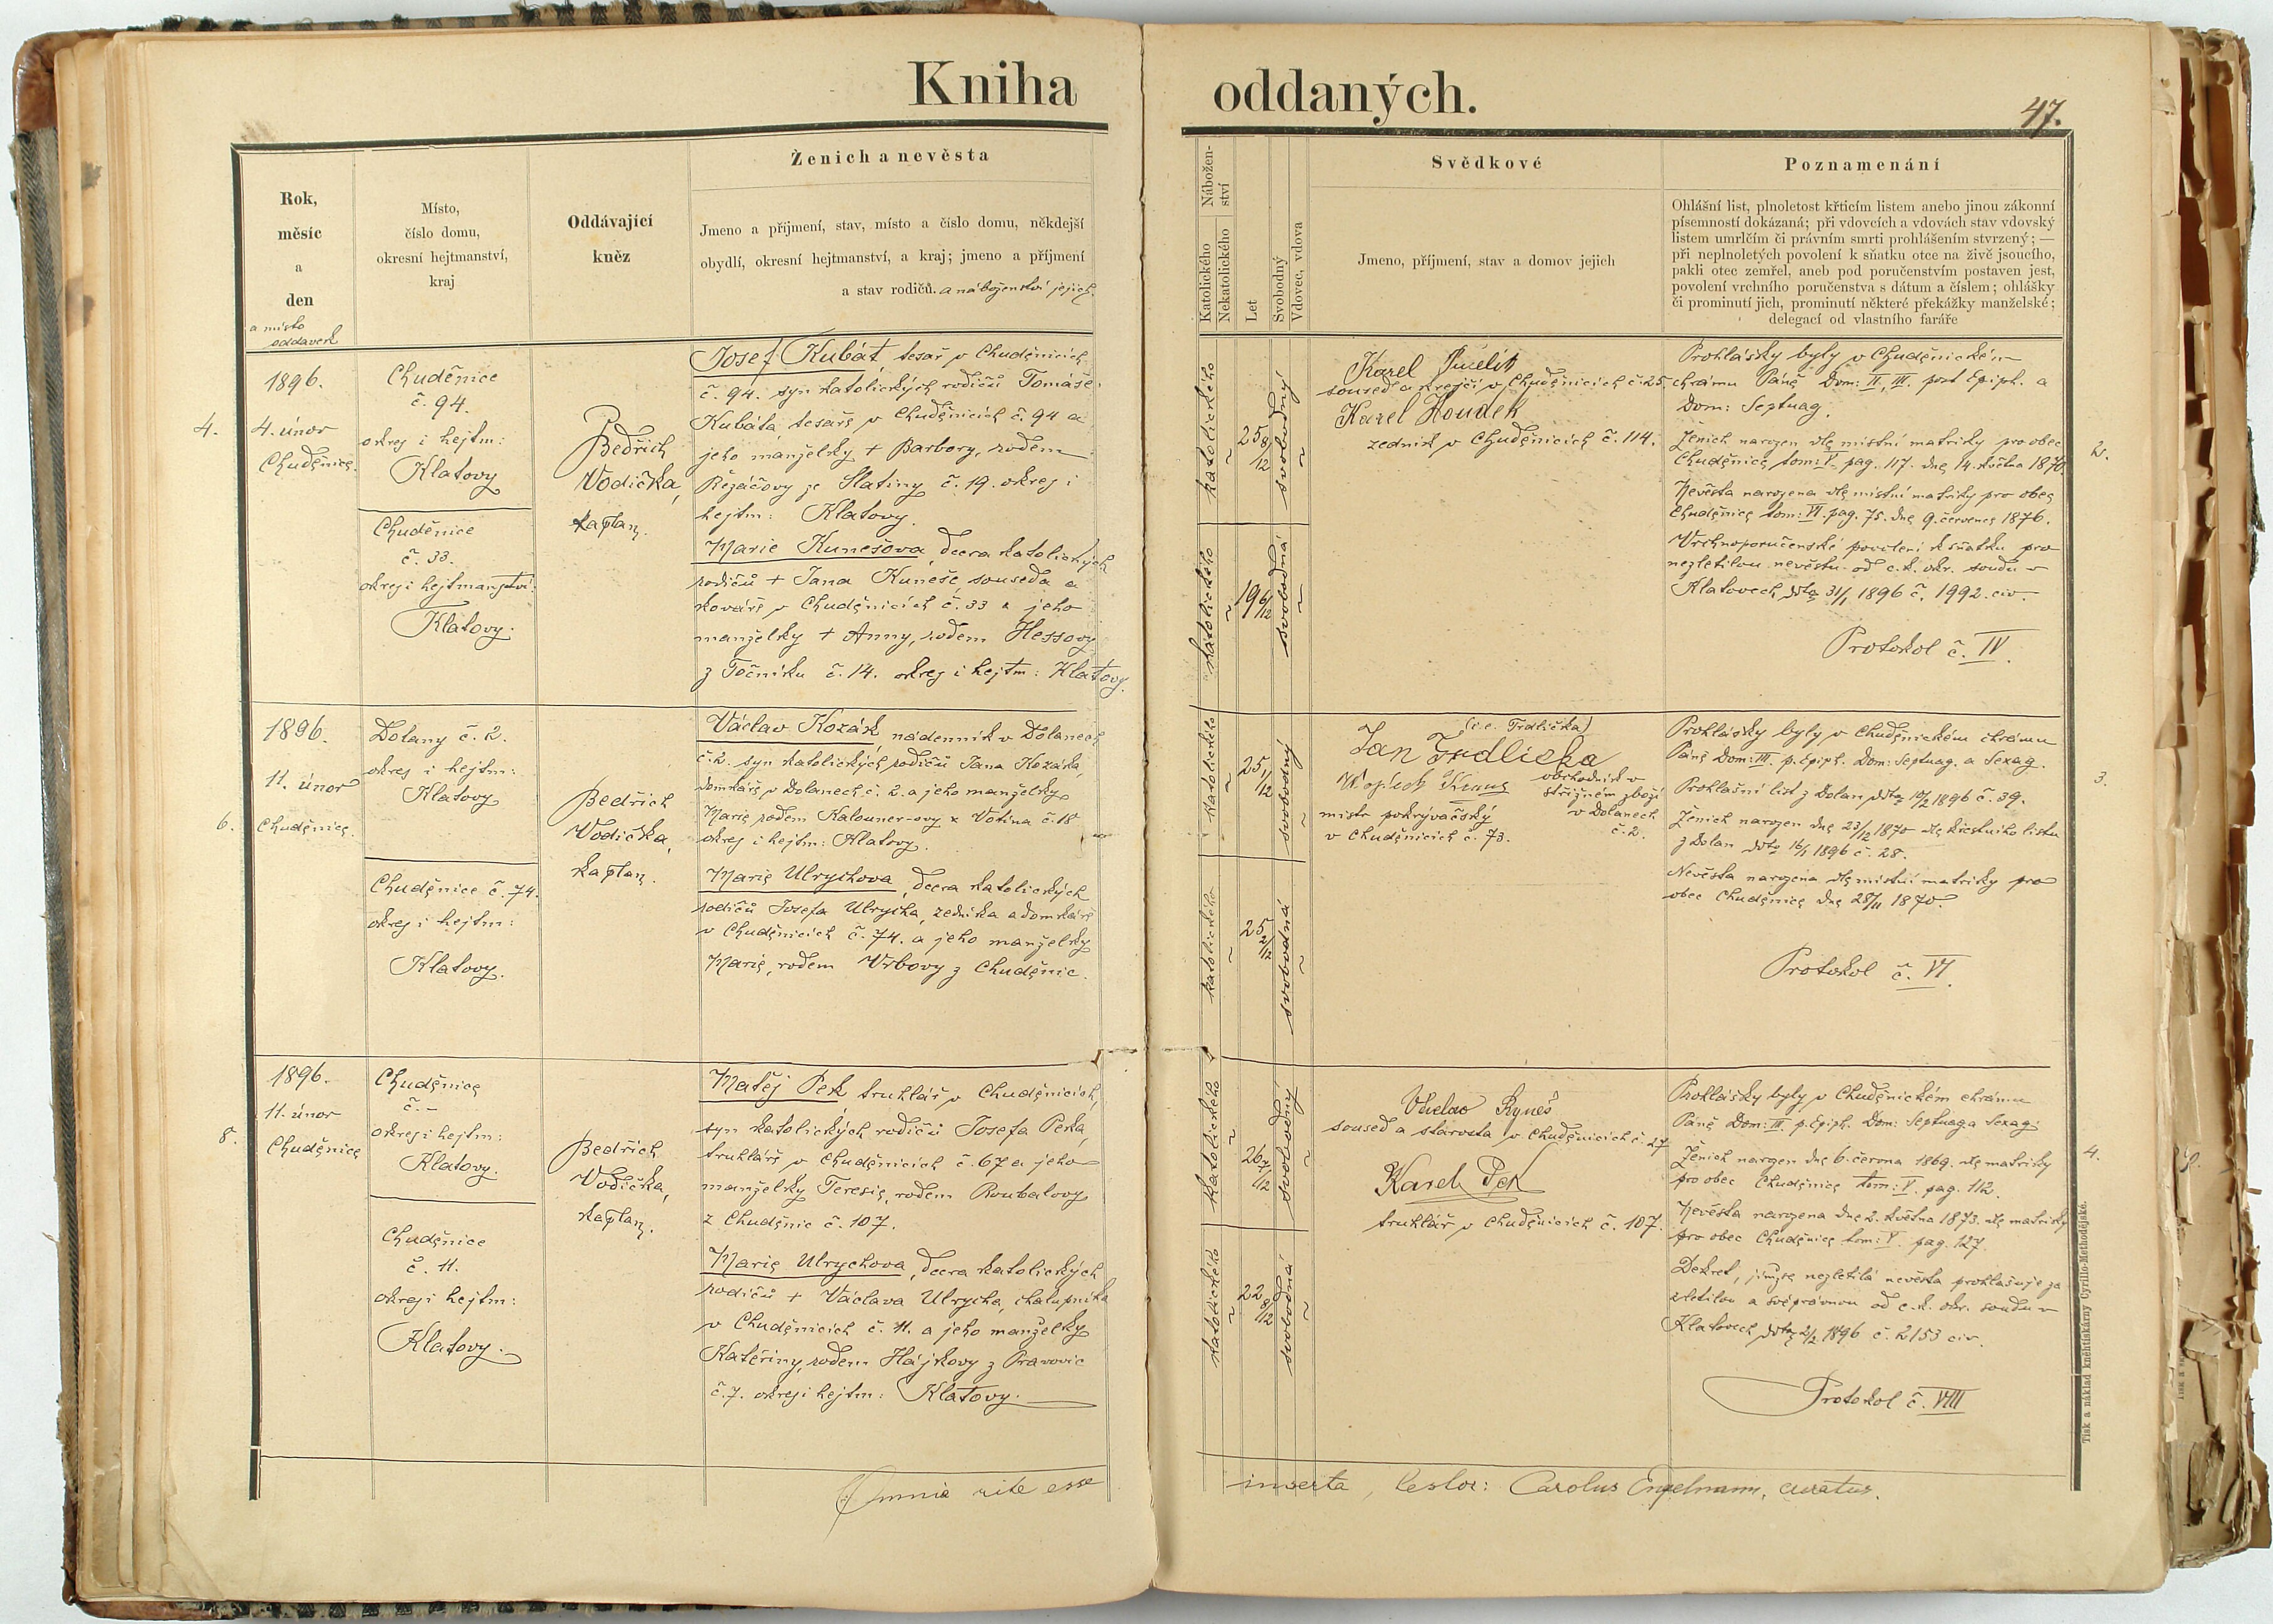 Kniha oddaných.
47.
Rok,
měsíc
a
den
a místo
oddavek
Místo,
číslo domu,
okresní hejtmanství,
kraj
Oddávající
kněz
Ženich a nevěsta
Jmeno a příjmení, stav, místo a číslo domu, někdejší
obydlí, okresní hejtmanství, a kraj; jmeno a příjmení
a stav rodičů. a náboženství jejich.
Nábožen-
ství
Katolického
Nekatolického
Let
Svobodný
Vdovec, vdova
Svědkové
Jmeno, příjmení, stav a domov jejich
Poznamenání
Ohlášní list, plnoletost křticím listem anebo jinou zákonní
písemností dokázaná; při vdovcích a vdovách stav vdovský
listem umrlčím či právním smrti prohlášením stvrzený; —
při neplnoletých povolení k sňatku otce na živě jsoucího,
pakli otec zemřel, aneb pod poručenstvím postaven jest,
povolení vrchního poručenstva s dátum a číslem; ohlášky
či prominutí jich, prominutí některé překážky manželské;
delegací od vlastního faráře
4.
1896.
4. únor
Chuděnice.
Chuděnice
č. 94.
okres i hejtm:
Klatovy
Chuděnice
č. 33.
okres i hejtmanství:
Klatovy.
Bedřich
Vodička,
kaplan.
Josef Kubát, tesař v Chuděnicích
č. 94. syn katolických rodičů Tomáše
Kubáta, tesaře v Chuděnicích č. 94 a
jeho manželky + Barbory, rodem
Řezáčovy ze Slatiny č. 19. okres i
hejtm: Klatovy.
Marie Kunešova, dcera katolických
rodičů + Jana Kuneše, souseda a
kováře v Chuděnicích č. 33 a jeho
manželky + Anny, rodem Hessovy
z Točníku č. 14. okres i hejtm: Klatovy.
katolického
25 8/12
svobodný
katolického
19 6/12
svobodná
Karel
soused a krejčí v Chuděnicích č. 25.
Karel Houdek
zedník v Chuděnicích č. 114.
Prohlášky byly v Chuděnickém
chrámu Páně Dom: II., III. post Epiph. a
Dom: Septuag.
Ženich narozen dle místní matriky pro obec
Chuděnice tom: V. pag. 117. dne 14. května 1870.
Nevěsta narozena dle místní matriky pro obec
Chuděnice tom: VI. pag. 75. dne 9. července 1876.
Vrchnoporučenské povolení k sňatku pro
nezletilou nevěstu od c. k. okr. soudu v
Klatovech dto 31/1 1896 č. 1992. civ.
Protokol č. IV.
2.
6.
1896.
11. únor
Chuděnice.
Dolany č. 2.
okres i hejtm:
Klatovy
Chuděnice č. 74.
okres i hejtm:
Klatovy.
Bedřich
Vodička,
kaplan.
Václav Kozák, nádenník v Dolanech
č. 2. syn katolických rodičů Jana Kozáka,
domkáře v Dolanech č. 2. a jeho manželky
Marie rodem Kalouner-ovy z Votína č. 18
okres i hejtm: Klatovy.
Marie Ulrychova, dcera katolických
rodičů Josefa Ulrycha, zedníka a domkáře
v Chuděnicích č. 74. a jeho manželky
Marie, rodem Vrbovy z Chuděnic.
katolického
25 1/12
svobodný
katolického
25 2/12
svobodná
(i.e. Trdlička)
Jan Trdlicka
obchodník v
střižném zboží
v Dolanech
č. 2.
Vojtěch Kraus
mistr pokrývačský
v Chuděnicích č. 73.
Prohlášky byly v Chuděnickém chrámu
Páně Dom: III. p. Epiph. Dom: Septuag. a Sexag.
Prohlašní list z Dolan dto 10/2 1896 č. 39.
Ženich narozen dne 23/12 1870 dle křestního listu
z Dolan dto 16/1 1896 č. 28.
Nevěsta narozena dle místní matriky pro
obec Chuděnice dne 28/11 1870.
Protokol č. VI.
3.
8.
1896.
11. únor
Chuděnice
Chuděnice
č. –
okres i hejtm:
Klatovy.
Chuděnice
č. 11.
okres i hejtm:
Klatovy.
Bedřich
Vodička,
kaplan.
Matěj Pek truhlář v Chuděnicích,
syn katolických rodičů Josefa Peka,
truhláře v Chuděnicích č. 67 a jeho
manželky Teresie, rodem Roubalovy
z Chuděnic č. 107.
Marie Ulrychova, dcera katolických
rodičů + Václava Ulrycha, chalupníka
v Chuděnicích č. 11. a jeho manželky
Kateřiny, rodem Hájkovy z Pranovic
č. 7. okres i hejtm: Klatovy.
katolického
26 7/12
svobodný
katolického
22 8/12
svobodná
soused a starosta v Chuděnicích č. 27
Karel Pek
truhlář v Chuděnicích č. 107.
Prohlášky byly v Chuděnickém chrámu
Páně Dom: III. p. Epiph. Dom: Septuag a Sexag.
Ženich narozen dne 6. června 1869. dle matriky
pro obec Chuděnice tom: V. pag. 112.
Nevěsta narozena dne 2. května 1873. dle matriky
pro obec Chuděnice tom: V. pag. 127.
Dekret, jímž se nezletilá nevěsta prohlašuje za
zletilou a svéprávnou od c. k. okr. soudu v
Klatovech dto 2/2 1896 č. 2153 civ.
Protokol č. VIII
4.
Omnia rite esse inserta, testor: Carolus Engelmann, curatus.
Tisk a náklad kněhtiskárny Cyrillo-Methodějské.